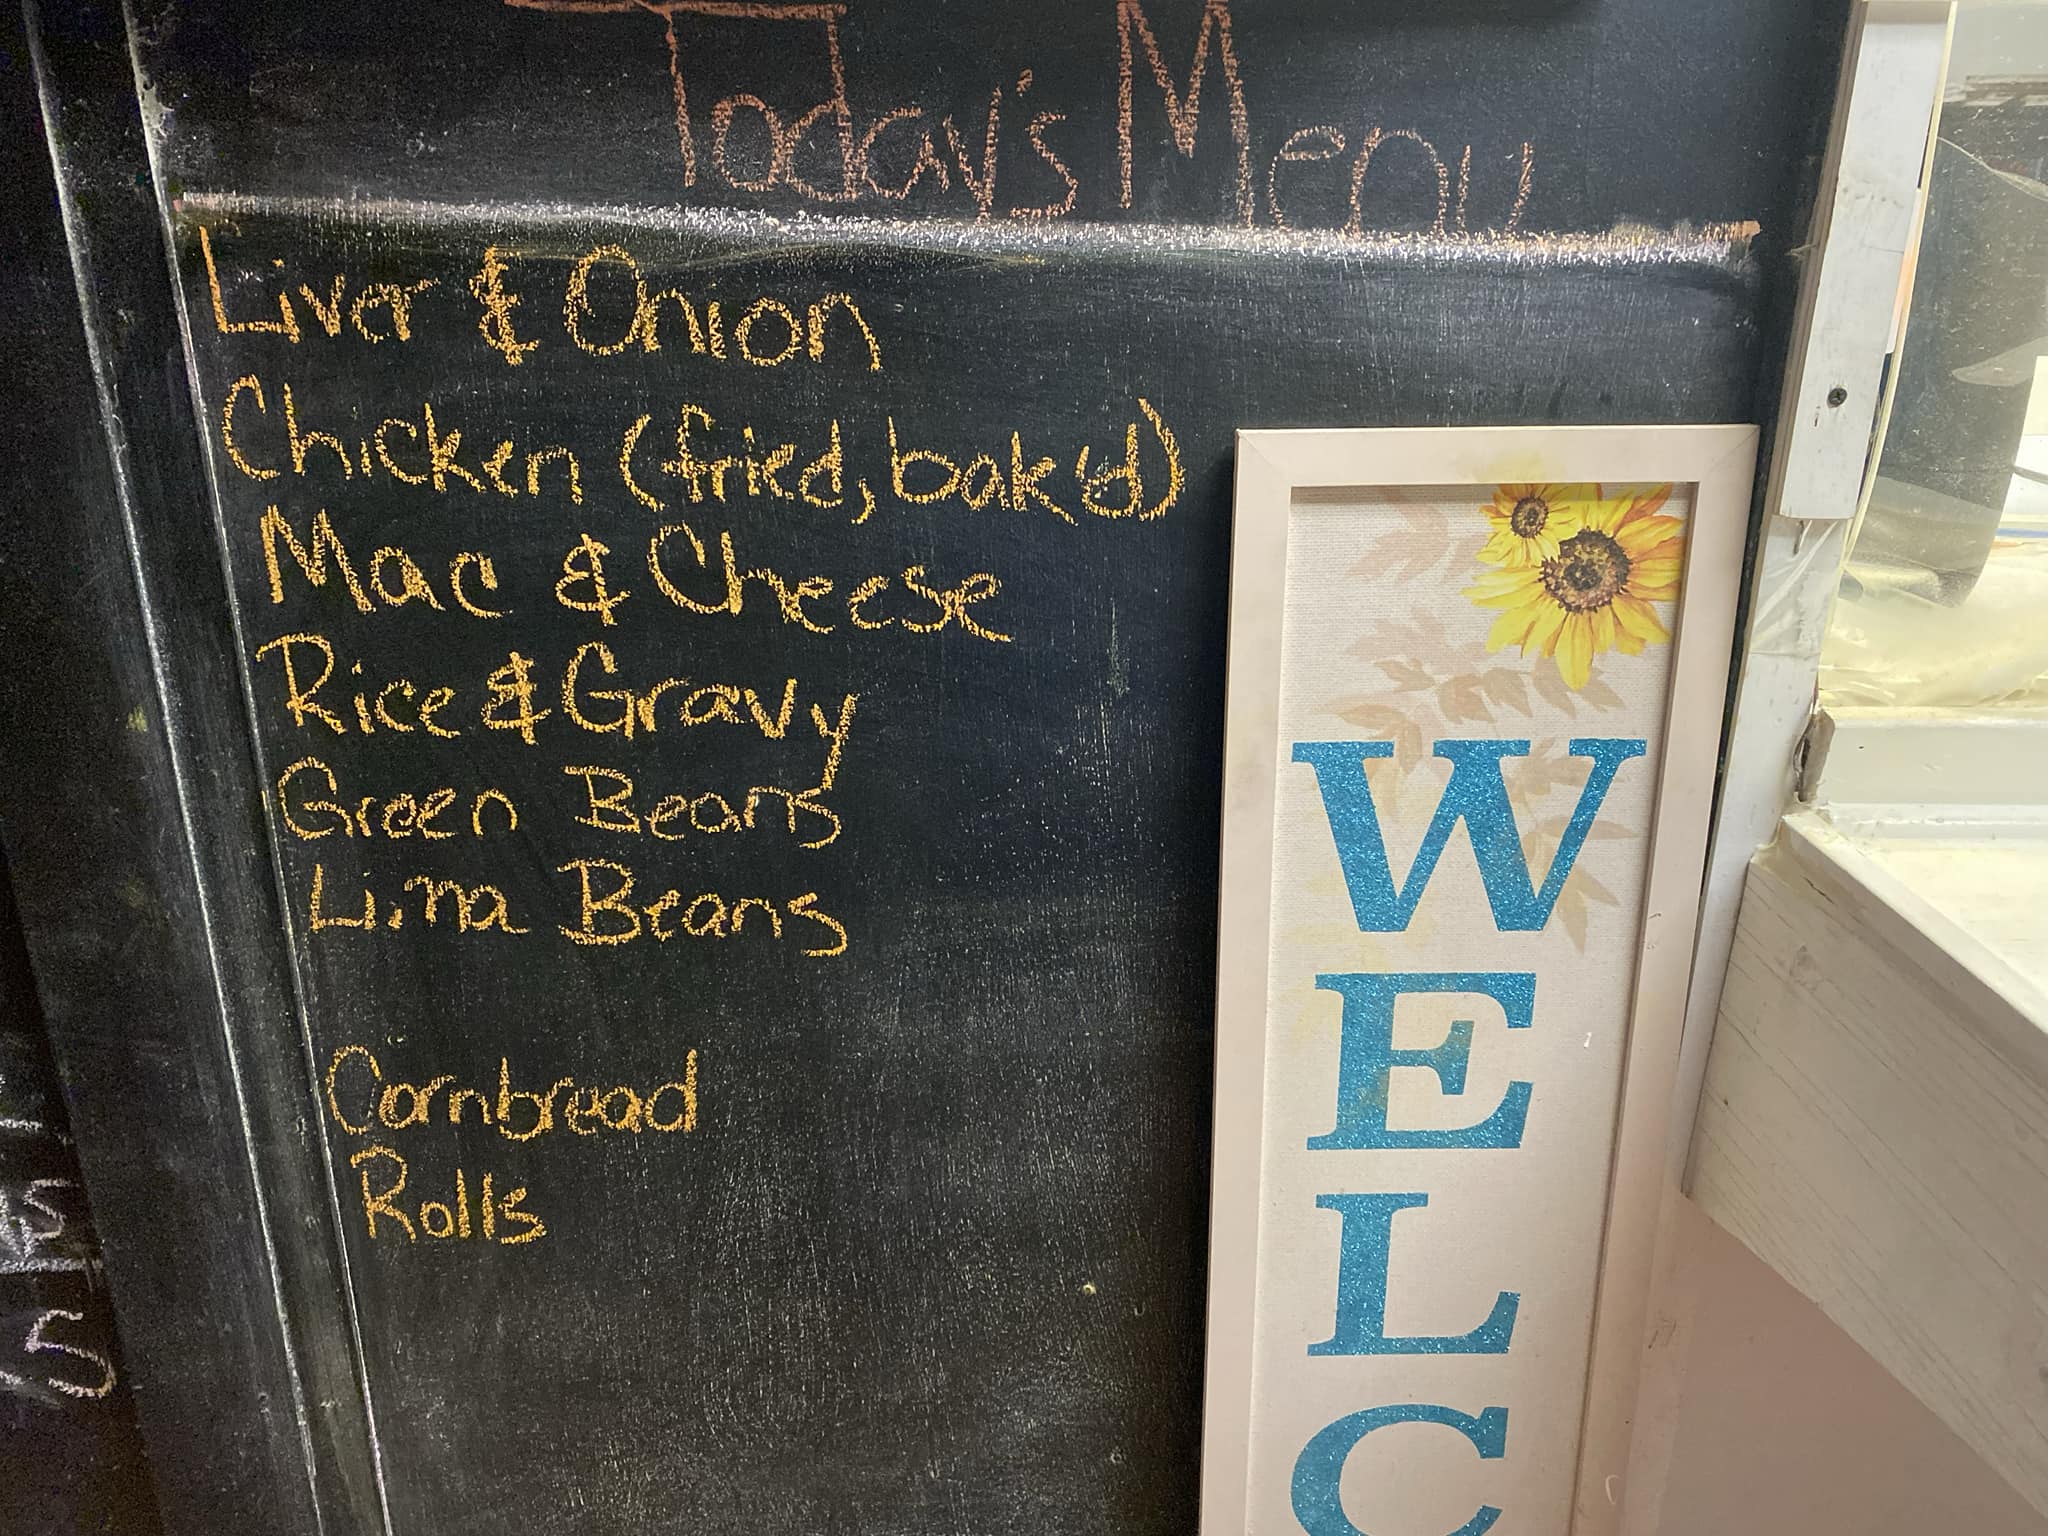 Today's Menu
Liver & Onion
Chicken (fried, bak'd)
Mac & Cheese
Rice & Gravy
Green Beans
Lima Beans
Cornbread
Rolls
WELC